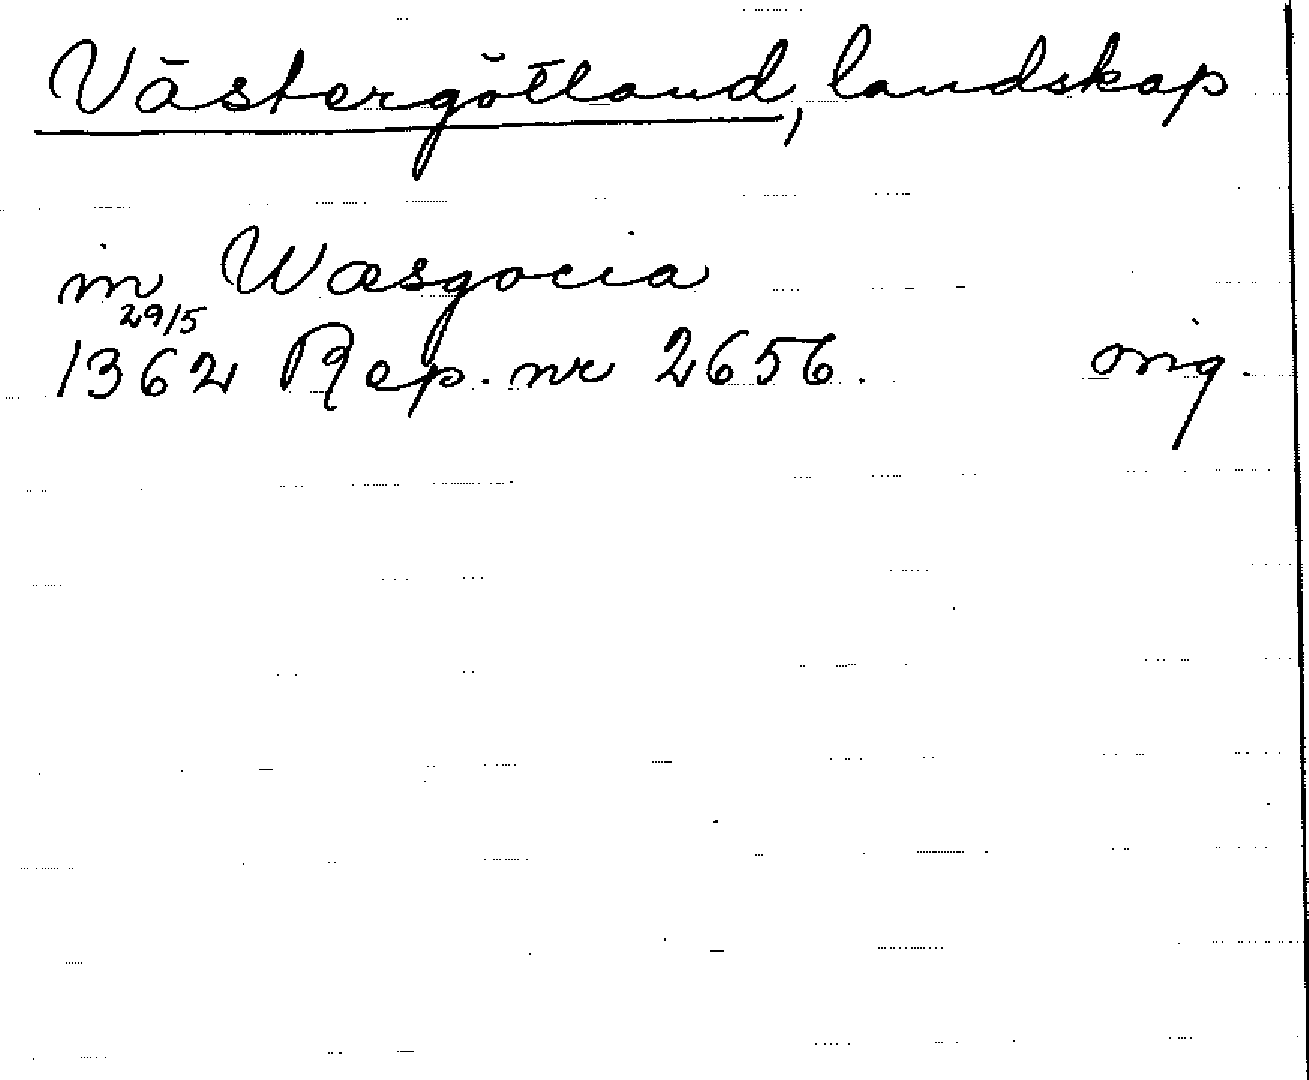 Västergötland, landskap
in Wæsgocia
29/5
1362 Rep. nr 2656. orig.